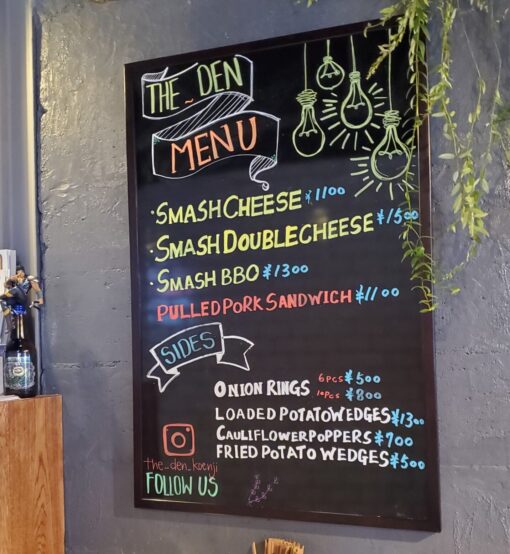 THE DEN
MENU
·SMASH CHEESE ¥1100
·SMASH DOUBLE CHEESE ¥1500
·SMASH BBO ¥1300
PULLED PORK SANDWICH ¥1100
SIDES
ONION RINGS 6pcs ¥500
10pcs ¥800
LOADED POTATO WEDGES ¥1300
CAULIFLOWER POPPERS ¥700
FRIED POTATO WEDGES ¥500
the_den_koenji
FOLLOW US